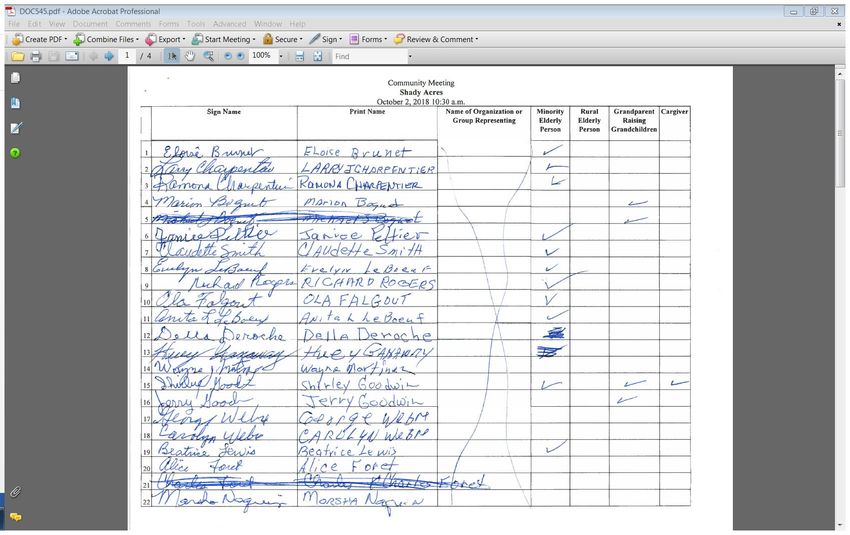 DOC545.pdf - Adobe Acrobat Professional
File Edit View Document Comments Forms Tools Advanced Window Help
Create PDF Combine Files Export Start Meeting Secure Sign Forms Review & Comment
1 / 4 100% Find
Community Meeting
Shady Acres
October 2, 2018 10:30 a.m.
Sign Name Print Name Name of Organization or Group Representing Minority Elderly Person Rural Elderly Person Grandparent Raising Grandchildren Cargiver
1 Eloise Brunet ELOISE Brunet
2 Larry Charpentier LARRY J CHARPENTIER
3 Ramona Charpentier RAMONA CHARPENTIER
4 Marion MARION
5
6 Janice Peltier Janice Peltier
7 Claudette Smith CLAUDETTE SMITH
8 Evelyn LeBoeuf Evelyn LeBoeuf
9 Richard Rogers RICHARD ROGERS
10 Ola Falgout OLA FALGOUT
11 Anita L LeBoeuf Anita L LeBoeuf
12 Della Deroche Della Deroche
13 Huey HUEY
14 Wayne Wayne Martinez
15 Shirley Goodwin
16 Jerry Jerry Goodwin
17 George George
18 Carolyn CAROLYN
19 Beatrice Lewis Beatrice Lewis
20 Alice Foret Alice Foret
21 Charles Foret Charles Charles Foret
22 Marsha Naquin MARSHA Naquin